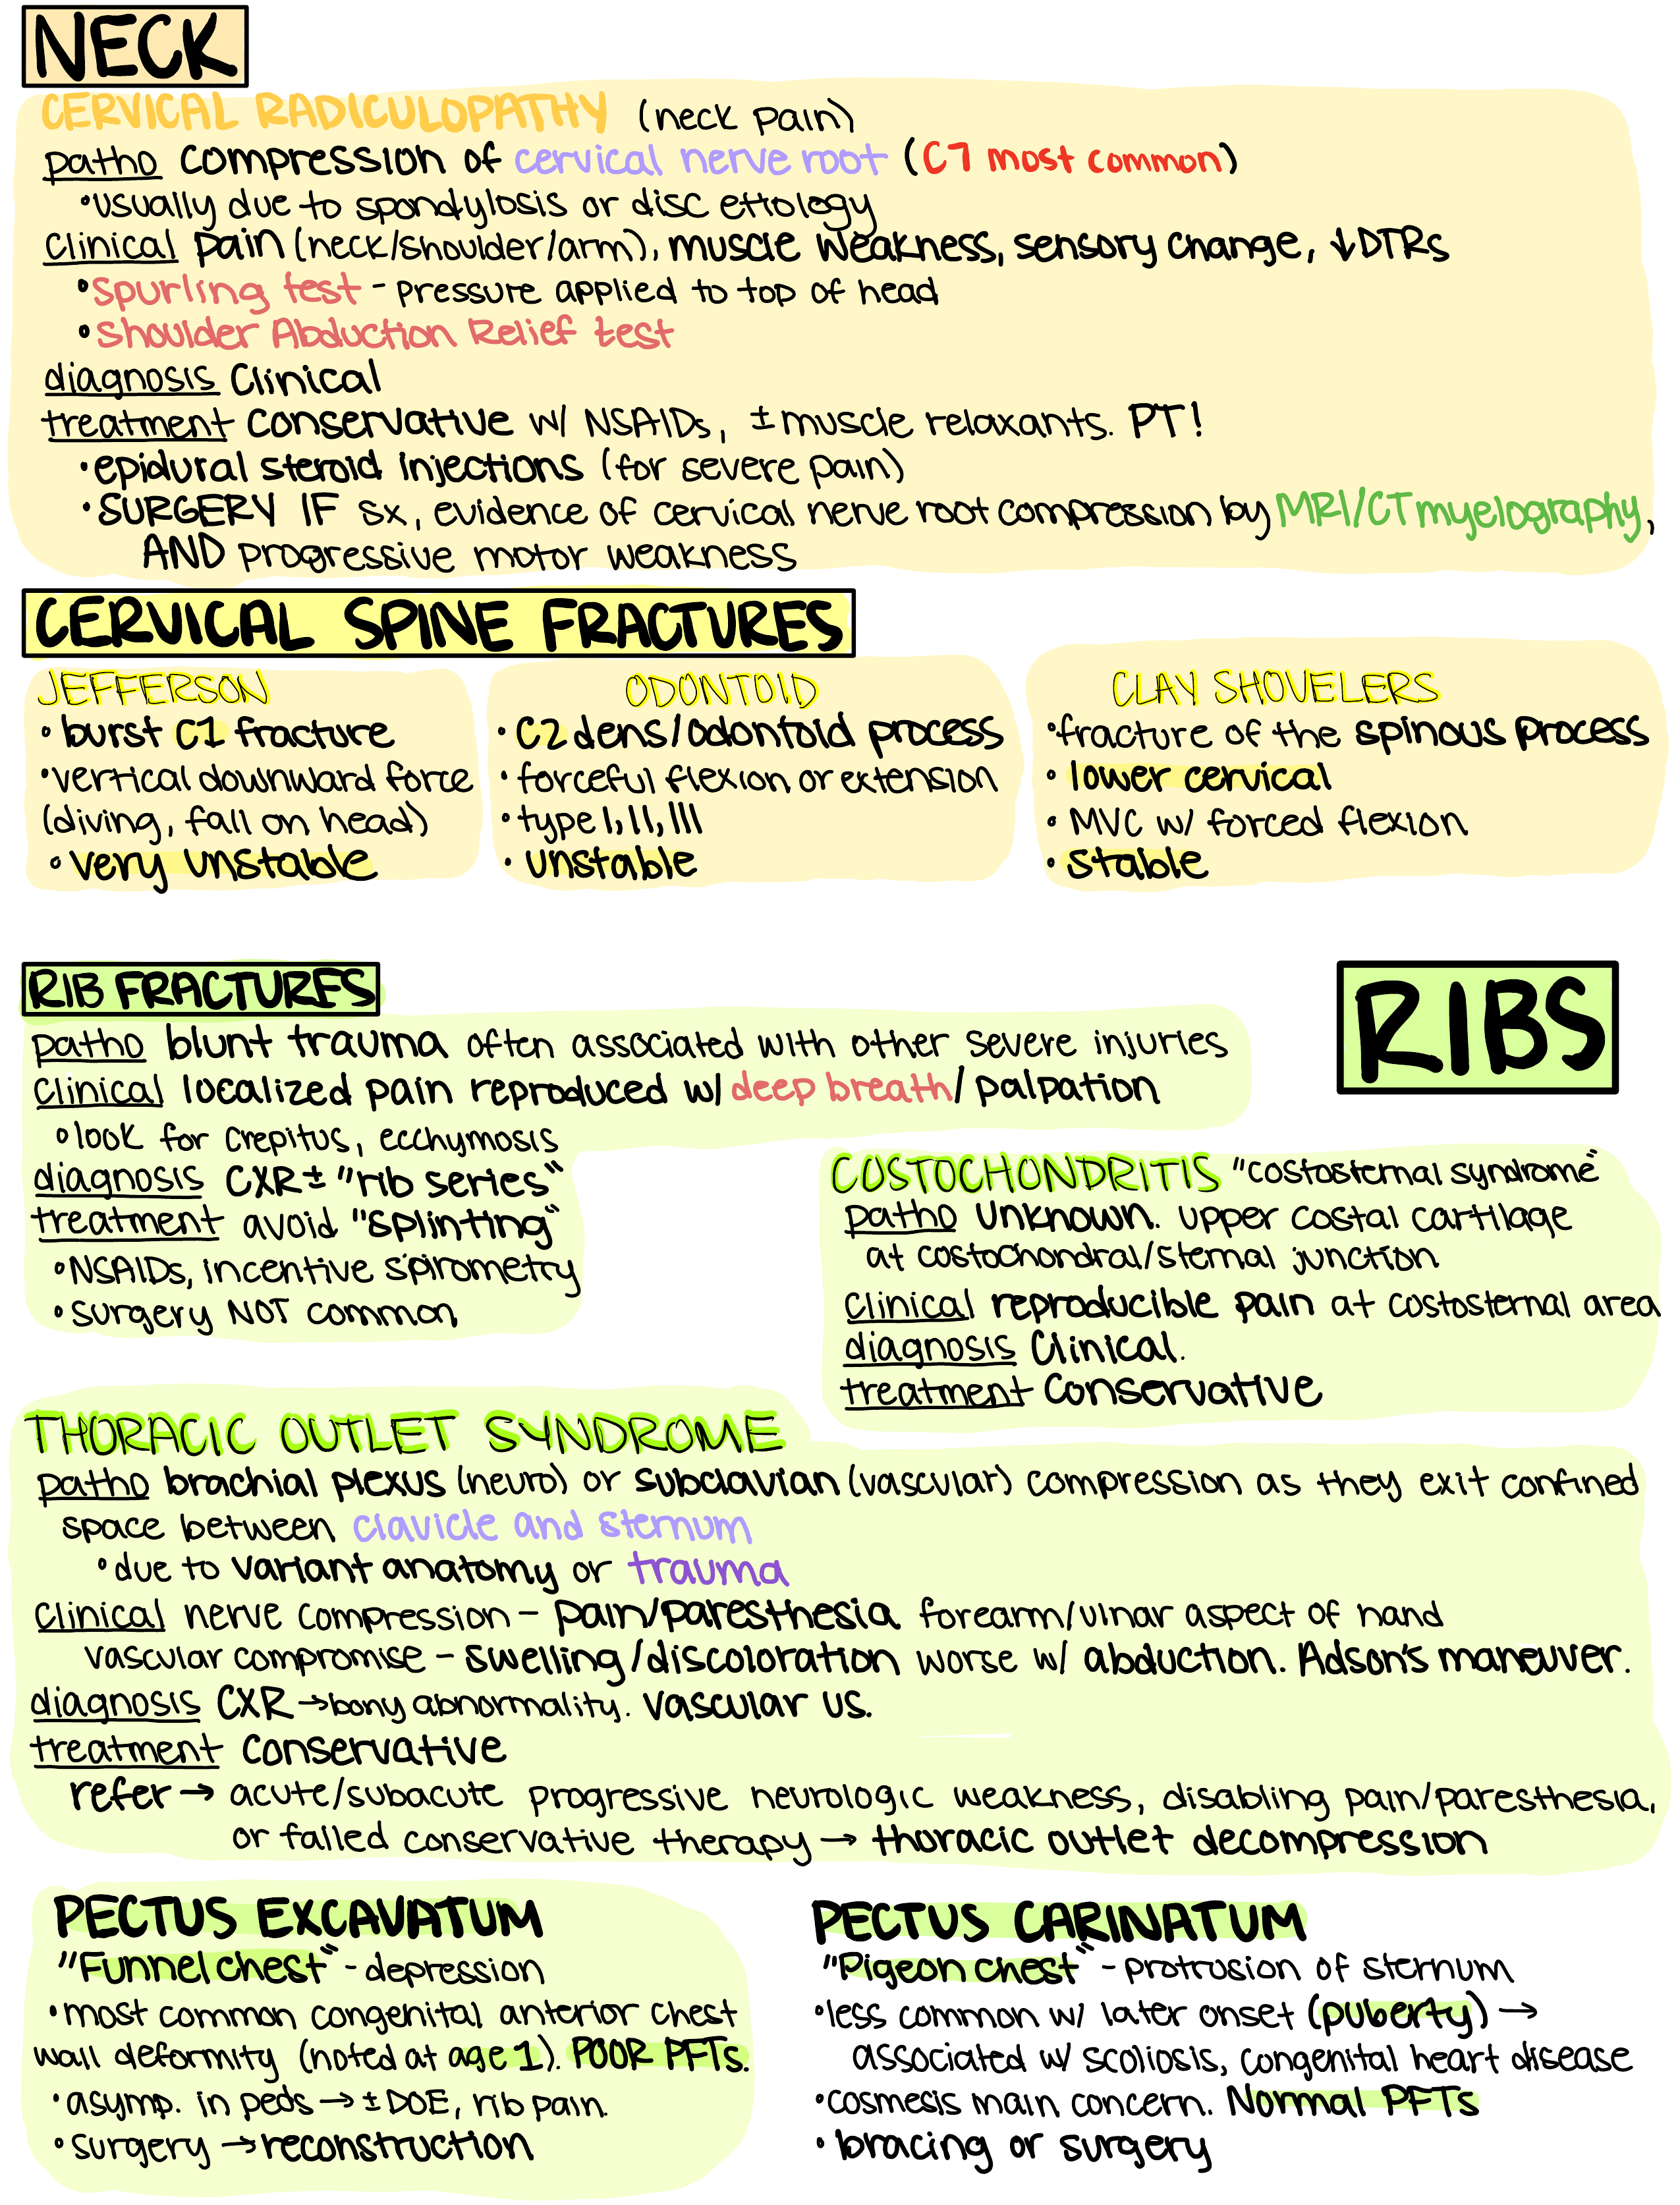 NECK
CERVICAL RADICULOPATHY (neck pain)
patho compression of cervical nerve root (C7 most common)
•usually due to spondylosis or disc etiology
clinical pain (neck/shoulder/arm), muscle weakness, sensory change, ↓DTRs
•Spurling test - pressure applied to top of head
•Shoulder Abduction Relief test
diagnosis clinical
treatment conservative w/ NSAIDs, ±muscle relaxants. PT!
•epidural steroid injections (for severe pain)
•SURGERY IF sx, evidence of cervical nerve root compression by MRI/CT myelography,
AND progressive motor weakness
CERVICAL SPINE FRACTURES
JEFFERSON
•burst C1 fracture
•vertical downward force
(diving, fall on head)
•very unstable
ODONTOID
•C2 dens/odontoid process
•forceful flexion or extension
•type I, II, III
•unstable
CLAY SHOVELERS
•fracture of the spinous process
•lower cervical
•MVC w/ forced flexion
•stable
RIBS
RIB FRACTURES
patho blunt trauma often associated with other severe injuries
clinical localized pain reproduced w/ deep breath/palpation
•look for crepitus, ecchymosis
diagnosis CXR ± "rib series"
treatment avoid "splinting"
•NSAIDs, incentive spirometry
•surgery NOT common
COSTOCHONDRITIS "costosternal syndrome"
patho unknown. upper costal cartilage
at costochondral/sternal junction
clinical reproducible pain at costosternal area
diagnosis clinical.
treatment conservative
THORACIC OUTLET SYNDROME
patho brachial plexus (neuro) or subclavian (vascular) compression as they exit confined
space between clavicle and sternum
•due to variant anatomy or trauma
clinical nerve compression - pain/paresthesia forearm/ulnar aspect of hand
vascular compromise - swelling/discoloration worse w/ abduction. Adson's maneuver.
diagnosis CXR →bony abnormality. vascular us.
treatment conservative
refer → acute/subacute progressive neurologic weakness, disabling pain/paresthesia,
or failed conservative therapy → thoracic outlet decompression
PECTUS EXCAVATUM
"Funnel chest" - depression
•most common congenital anterior chest
wall deformity (noted at age 1). POOR PFTs.
•asymp. in peds → ± DOE, rib pain.
•surgery → reconstruction
PECTUS CARINATUM
"Pigeon chest" - protrusion of sternum
•less common w/ later onset (puberty) →
associated w/ scoliosis, congenital heart disease
•cosmesis main concern. Normal PFTs
•bracing or surgery